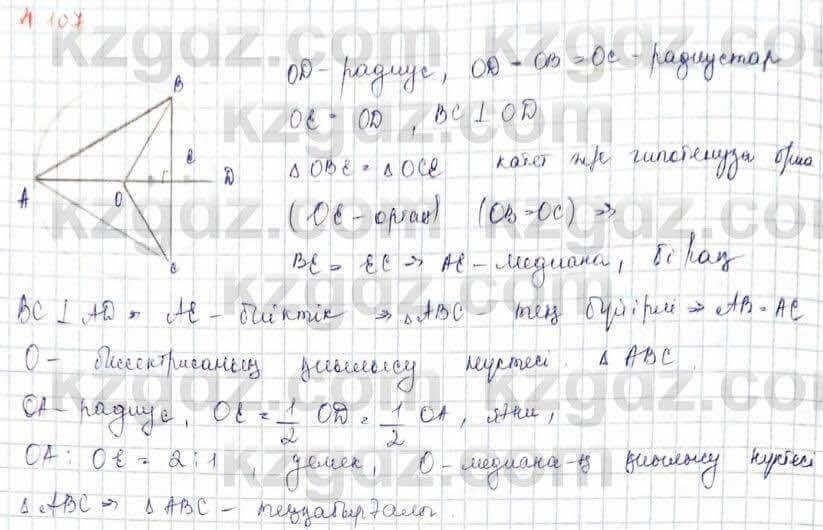 № 107
OD - радиус, OD = OB = OC - радиустар
OE = OD, BC ⊥ OD
△OBE = △OCE катет және гипотенуза бойынша
(OE - ортақ) (OB = OC) ⇒
BE = EC ⇒ AE - медиана, бірақ
BC ⊥ AD ⇒ AE - биіктік ⇒ △ABC тең бүйірлі ⇒ AB = AC
O - биссектрисаның қиылысу нүктесі △ABC.
OA - радиус, OE = 1/2 OD = 1/2 OA, яғни,
OA : OE = 2 : 1, демек, O - медиана-ң қиылысу нүктесі
△ABC ⇒ △ABC - теңқабырғалы.
A
B
C
D
E
O
kzgdz.com
kzgdz.com
kzgdz.com
kzgdz.com